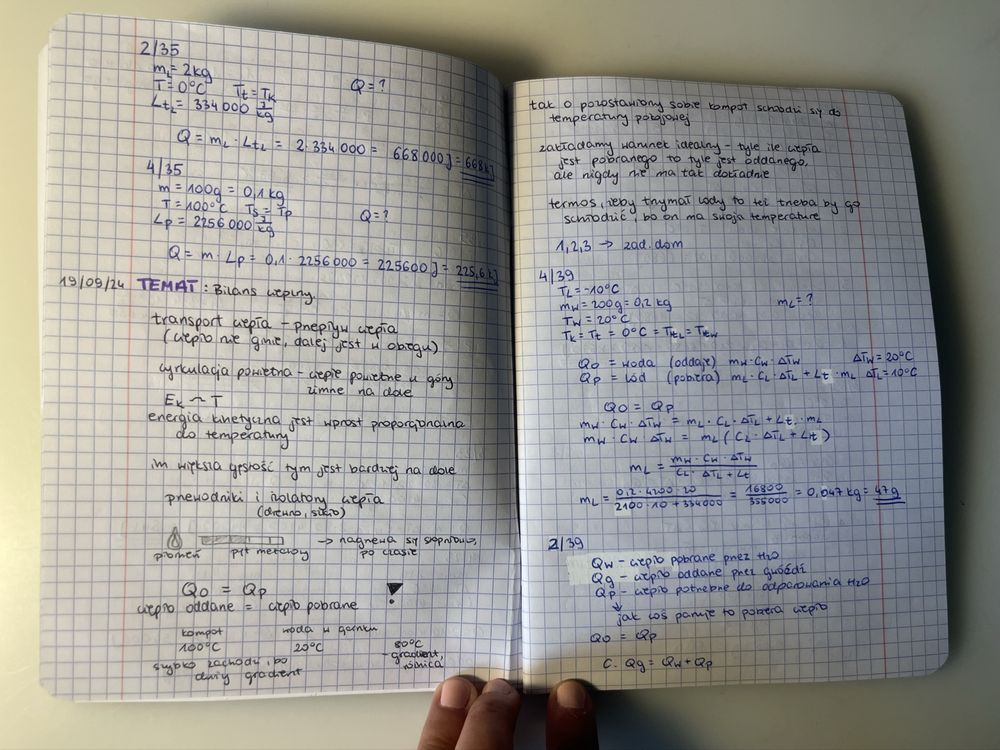 2/35
m_L = 2kg
T = 0°C T_t = T_k Q = ?
L_tL = 334000 J/kg
Q = m_L · L_tL = 2 · 334000 = 668000 J = 668 kJ
4/35
m = 100g = 0,1 kg
T = 100°C T_s = T_p Q = ?
L_p = 2256000 J/kg
Q = m · L_p = 0,1 · 2256000 = 225600 J = 225,6 kJ
19/09/24 TEMAT: Bilans cieplny.
transport ciepła – przepływ ciepła
(ciepło nie ginie, dalej jest w obiegu)
cyrkulacja powietrza – ciepłe powietrze u góry
zimne na dole
E_k ~ T
energia kinetyczna jest wprost proporcjonalna
do temperatury
im większa gęstość tym jest bardziej na dole
przewodniki i izolatory ciepła
(drewno, szkło)
płomień pręt metalowy → nagrzewa się stopniowo,
po czasie
Q_O = Q_P
ciepło oddane = ciepło pobrane !
kompot woda w garnku
100°C 20°C 80°C
szybko zachodzi, bo – gradient,
duży gradient różnica
tak o pozostawiony sobie kompot schodzi się do
temperatury pokojowej
zakładamy warunek idealny – tyle ile ciepła
jest pobranego to tyle jest oddanego,
ale nigdy nie ma tak dokładnie
termos, żeby trzymał lody to też trzeba by go
schłodzić, bo on ma swoja temperature
1,2,3 → zad. dom
4/39
T_L = -10°C
m_W = 200g = 0,2 kg m_L = ?
T_W = 20°C
T_k = T_t = 0°C = T_tL = T_kW
Q_O = woda (oddaje) m_W · C_W · ΔT_W ΔT_W = 20°C
Q_P = lód (pobiera) m_L · C_L · ΔT_L + L_t · m_L ΔT_L = 10°C
Q_O = Q_P
m_W · C_W · ΔT_W = m_L · C_L · ΔT_L + L_t · m_L
m_W · C_W · ΔT_W = m_L (C_L · ΔT_L + L_t)
m_L = m_W · C_W · ΔT_W / C_L · ΔT_L + L_t
m_L = 0,2 · 4200 · 20 / 2100 · 10 + 334000 = 16800 / 355000 = 0,047 kg = 47 g
2/39
Q_W – ciepło pobrane przez H2O
Q_g – ciepło oddane przez gwóźdź
Q_P – ciepło potrzebne do odparowania H2O
↓ jak coś paruje to pobiera ciepło
Q_O = Q_P
C. Q_g = Q_W + Q_P